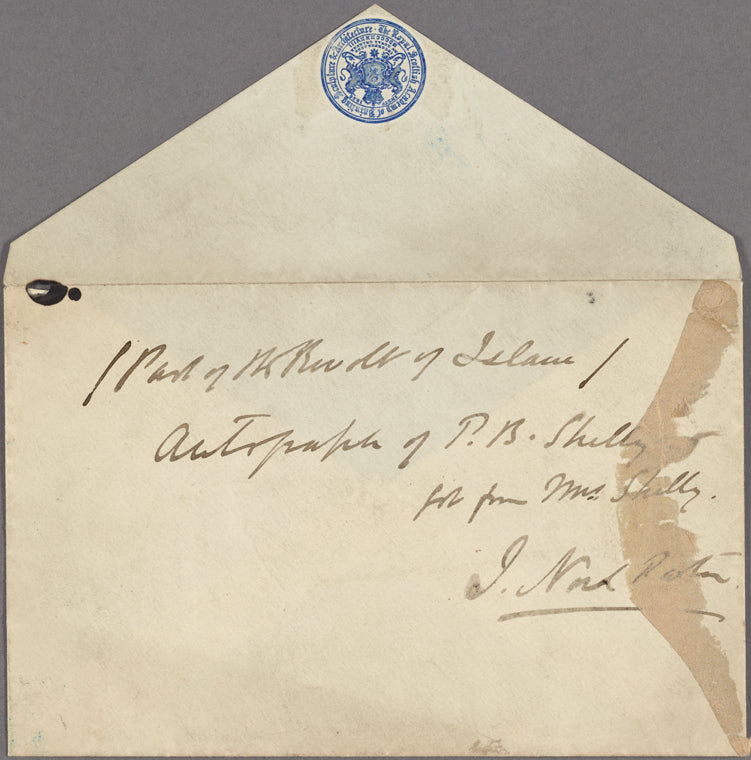 The Royal Scottish Academy of Painting Sculpture & Architecture
/ Part of the Revolt of Islam /
Autograph of P. B. Shelly
got from Mrs. Shelly.
J. Noel Paton